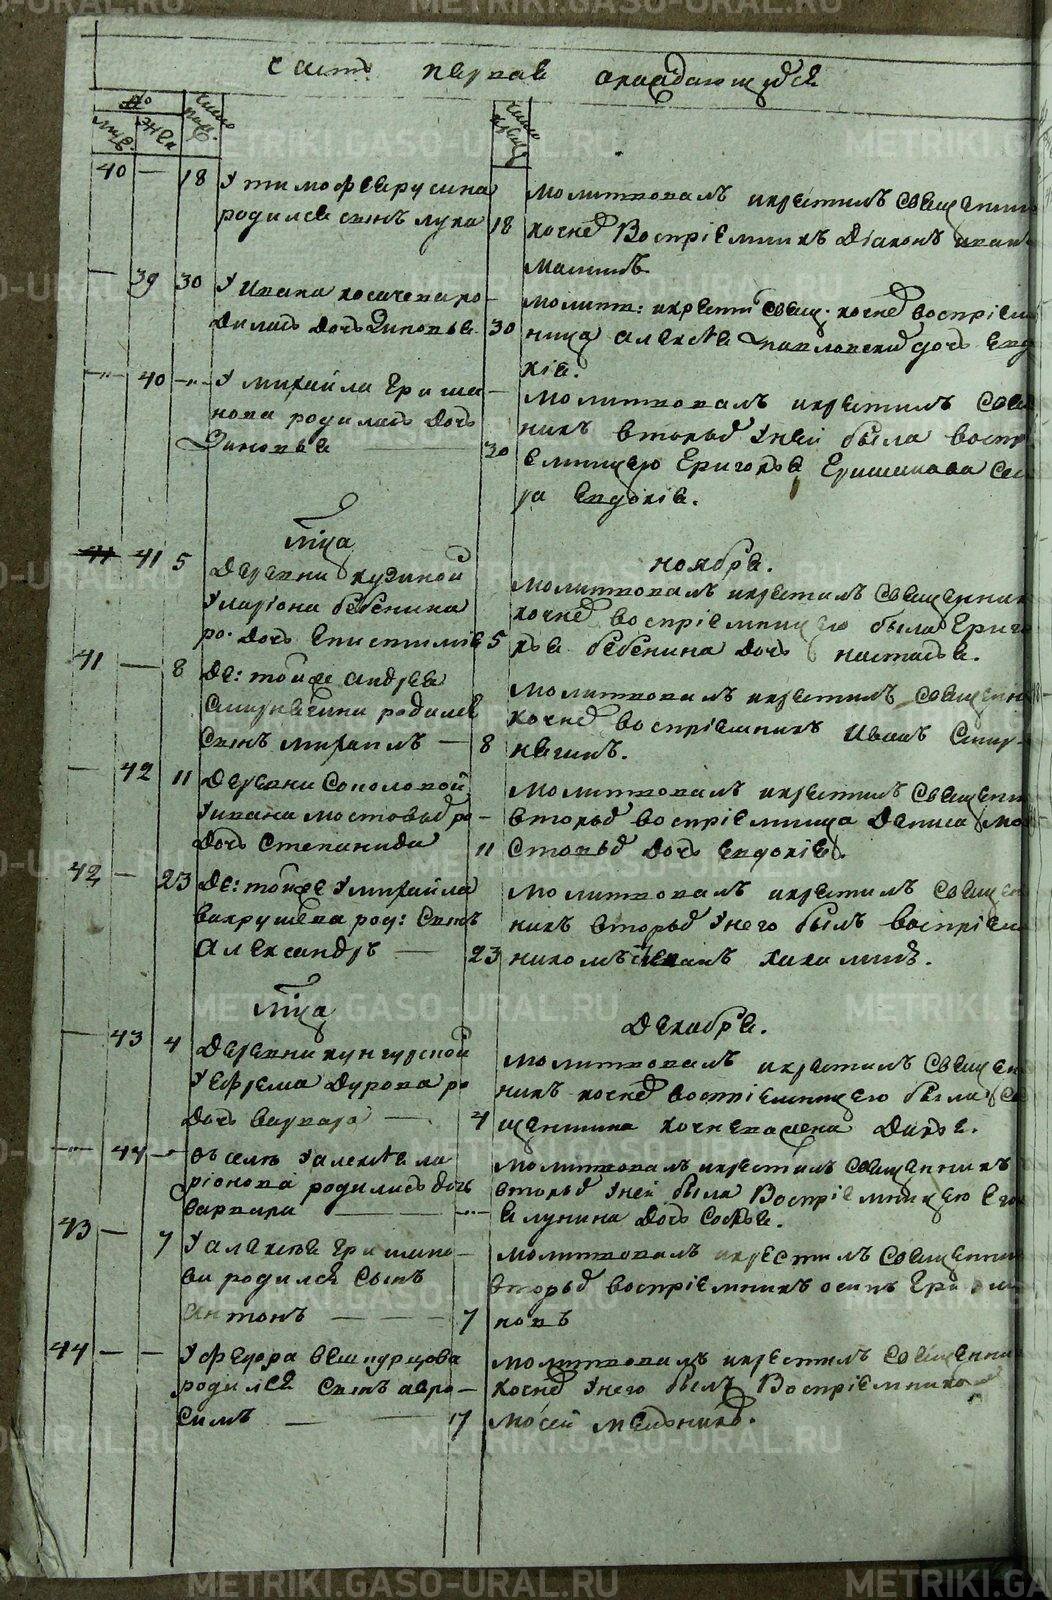 часть первая о раждающихся
40 — 18 У тимофея русина
родился сынъ лука 18
молитвовалъ и крестилъ священни
кочнев Воспріемникъ Діаконъ иван
малыш
— 39 30 У Ивана косачева ро-
дилась дочь Зиновья 30
молитв: и крести свящ: кочнев воспріем
ница алексея павловска дочь евдо
кіа.
40 У михайла гриша-
нова родилась дочь
Зиновья 30
молитвовалъ и крестилъ свящ
никъ вторыи У ней была воспр
емницею григорья гришанова сес
ра евдокіа.
мца ноября.
41 5 Деревни кузиной
У ларіона бебенина
ро. дочь епистимия 5
молитвовалъ и крестилъ священник
кочнев воспріемницею была григо
рья бебенина дочь настасья.
41 — 8 Де: тойже андрея
смирнягина родился
сынъ михаилъ — 8
молитвовалъ и крестилъ священни
кочнев воспріемникъ Иванъ смир-
нягинъ.
— 42 11 Деревни Соколовой
У ивана мостовых ро-
дочь степанида 11
молитвовалъ и крестилъ священни
вторыи воспріемница Дениса мо
стовых дочь евдокіа.
42 — 23 Де: тойже У михайла
вахрушева род: сынъ
александръ — 23
молитвовалъ и крестилъ священ
никъ вторыи У него былъ воспріем
никомъ иванъ хахалинъ.
мца Декабря.
— 43 4 Деревни кунгурской
У ефрема Дурова ро
дочь варвара — 4
молитвовалъ и крестилъ священ
никъ кочнев воспріемницею была св
щенника кочнева жена Дарья.
44 въ селе У алексея ла
ріонова родилась дочь
варвара
молитвовалъ и крестилъ священникъ
вторыи У ней была Воспріемницею его
лунина дочь софья.
43 — 7 У алексея гришано-
ва родился сынъ
антонъ — — — 7
молитвовалъ и крестилъ священни
вторыи воспріемникъ осипъ гришан
новъ
44 — — У федора вешкурцова
родился сынъ авро-
симъ — — 17
молитвовалъ и крестилъ священни
кочнев У него былъ Воспріемнико
мосей мельников.
METRIKI.GASO-URAL.RU